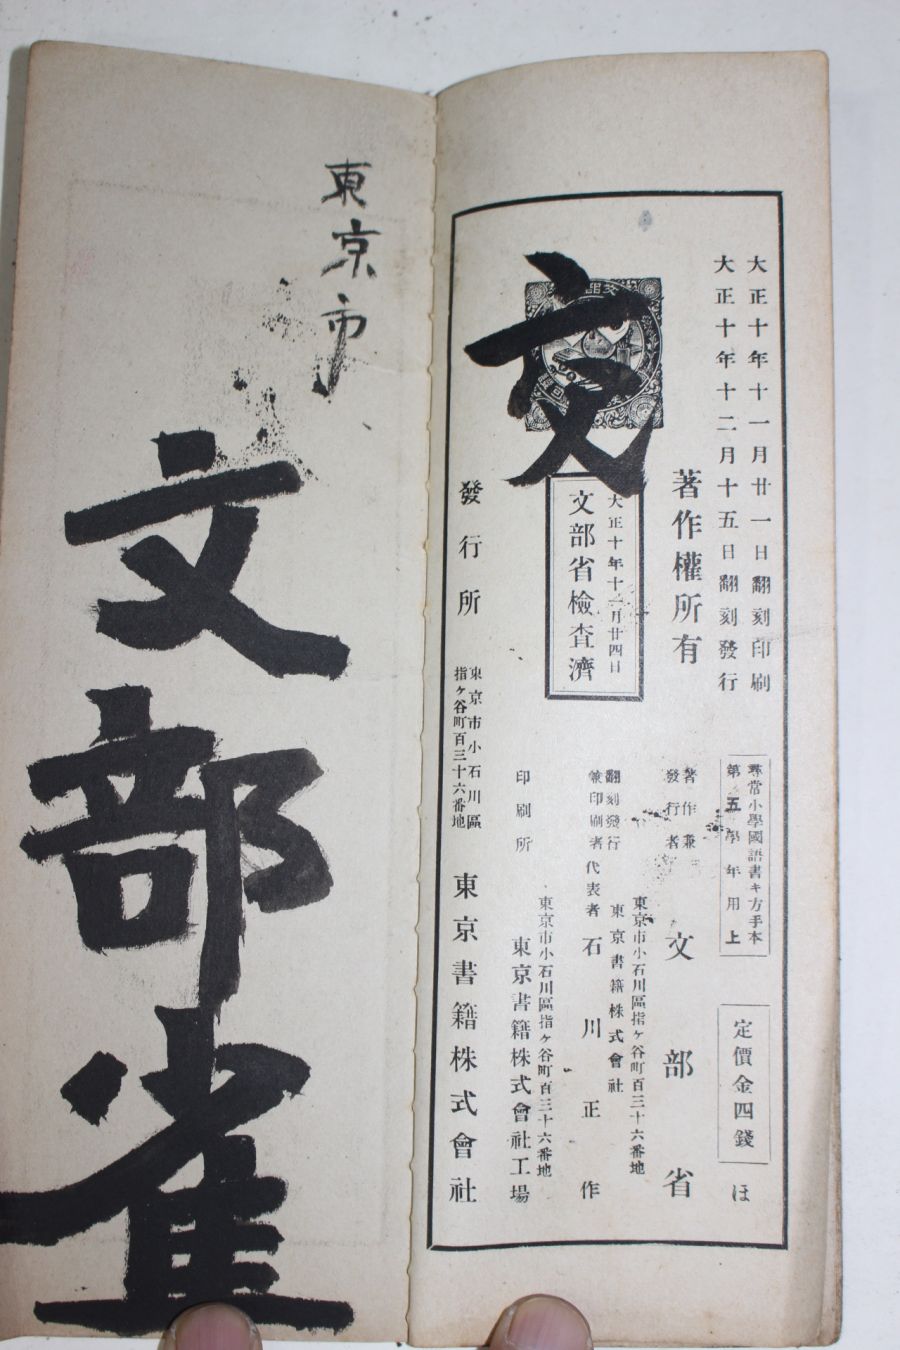 大正十年十一月廿一日翻刻印刷
大正十年十二月十五日翻刻發行
尋常小學國語書キ方手本
第五學年用上
定價金四錢
ほ
著作權所有
著作兼
發行者
文部省
大正十年十一月廿四日
文部省檢査濟
東京市小石川區指ケ谷町百三十六番地
東京書籍株式會社
翻刻發行
兼印刷者
代表者
石川正作
東京市小石川區指ケ谷町百三十六番地
印刷所
東京書籍株式會社工場
文
發行所
東京市小石川區
指ケ谷町百三十六番地
東京書籍株式會社
東京市
文部雀